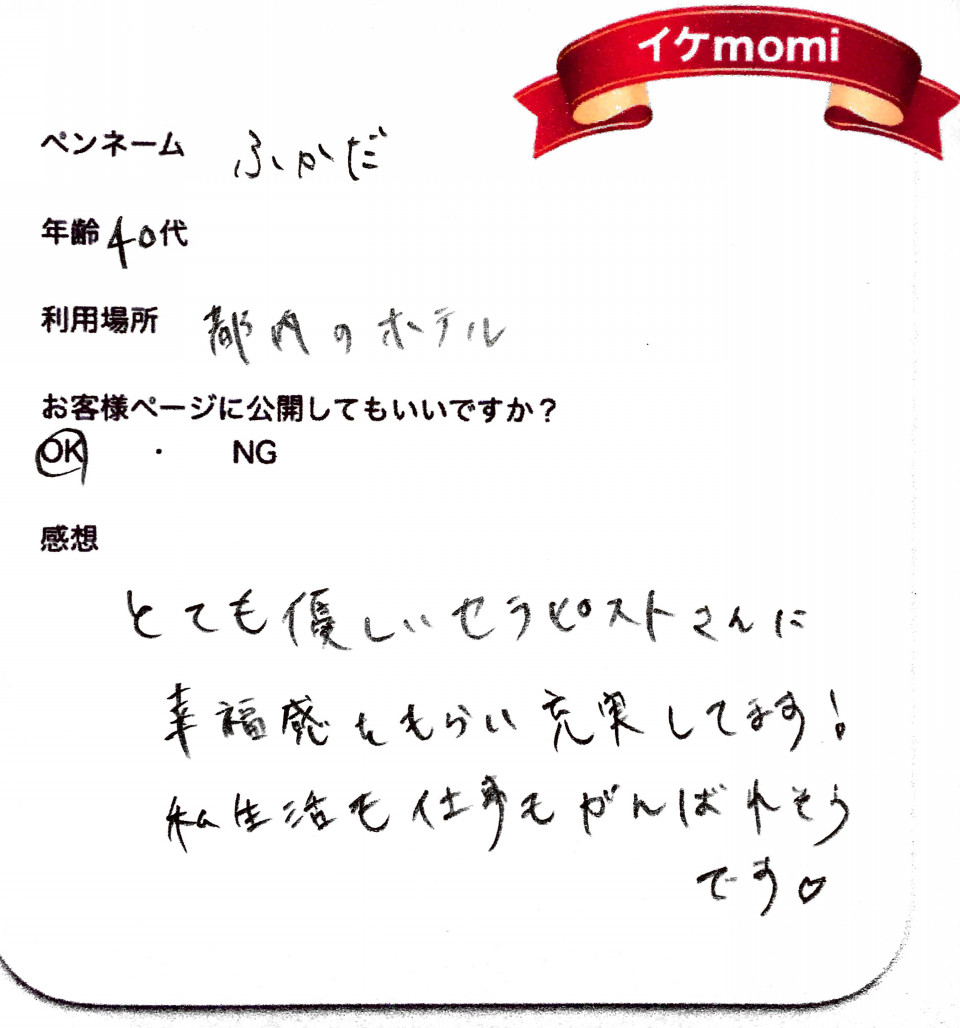 イケmomi
ペンネーム ふかだ
年齢 40代
利用場所 都内のホテル
お客様ページに公開してもいいですか？
OK ・ NG
感想
とても優しいセラピストさんに
幸福感をもらい充実してます！
私生活も仕事もがんばれそう
です♡